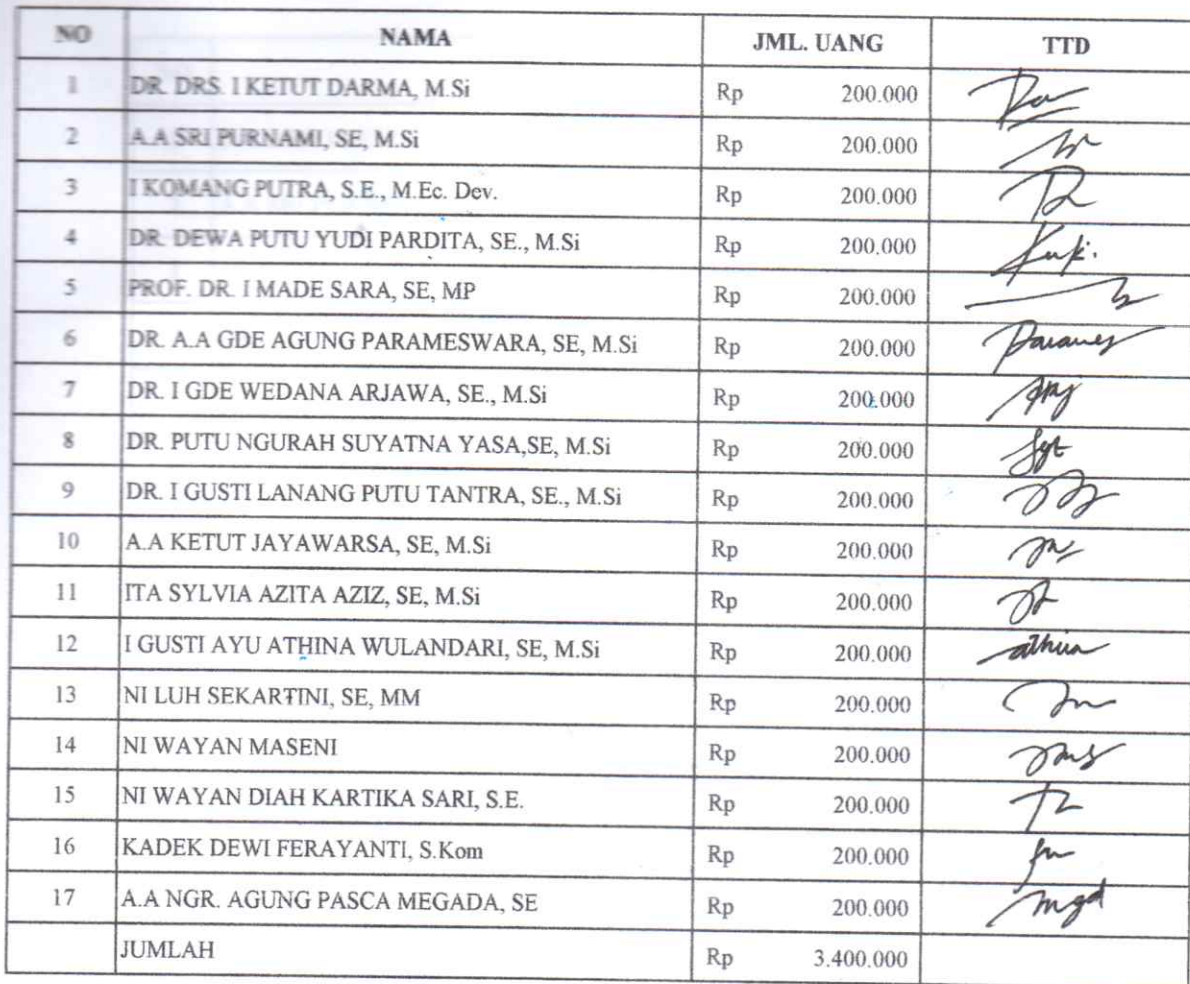 NO NAMA JML. UANG TTD
1 DR. DRS. I KETUT DARMA, M.Si Rp 200.000
2 A.A SRI PURNAMI, SE, M.Si Rp 200.000
3 I KOMANG PUTRA, S.E., M.Ec. Dev. Rp 200.000
4 DR. DEWA PUTU YUDI PARDITA, SE., M.Si Rp 200.000
5 PROF. DR. I MADE SARA, SE, MP Rp 200.000
6 DR. A.A GDE AGUNG PARAMESWARA, SE, M.Si Rp 200.000
7 DR. I GDE WEDANA ARJAWA, SE., M.Si Rp 200.000
8 DR. PUTU NGURAH SUYATNA YASA,SE, M.Si Rp 200.000
9 DR. I GUSTI LANANG PUTU TANTRA, SE., M.Si Rp 200.000
10 A.A KETUT JAYAWARSA, SE, M.Si Rp 200.000
11 ITA SYLVIA AZITA AZIZ, SE, M.Si Rp 200.000
12 I GUSTI AYU ATHINA WULANDARI, SE, M.Si Rp 200.000 athina
13 NI LUH SEKARTINI, SE, MM Rp 200.000
14 NI WAYAN MASENI Rp 200.000
15 NI WAYAN DIAH KARTIKA SARI, S.E. Rp 200.000
16 KADEK DEWI FERAYANTI, S.Kom Rp 200.000
17 A.A NGR. AGUNG PASCA MEGADA, SE Rp 200.000 mgd
JUMLAH Rp 3.400.000